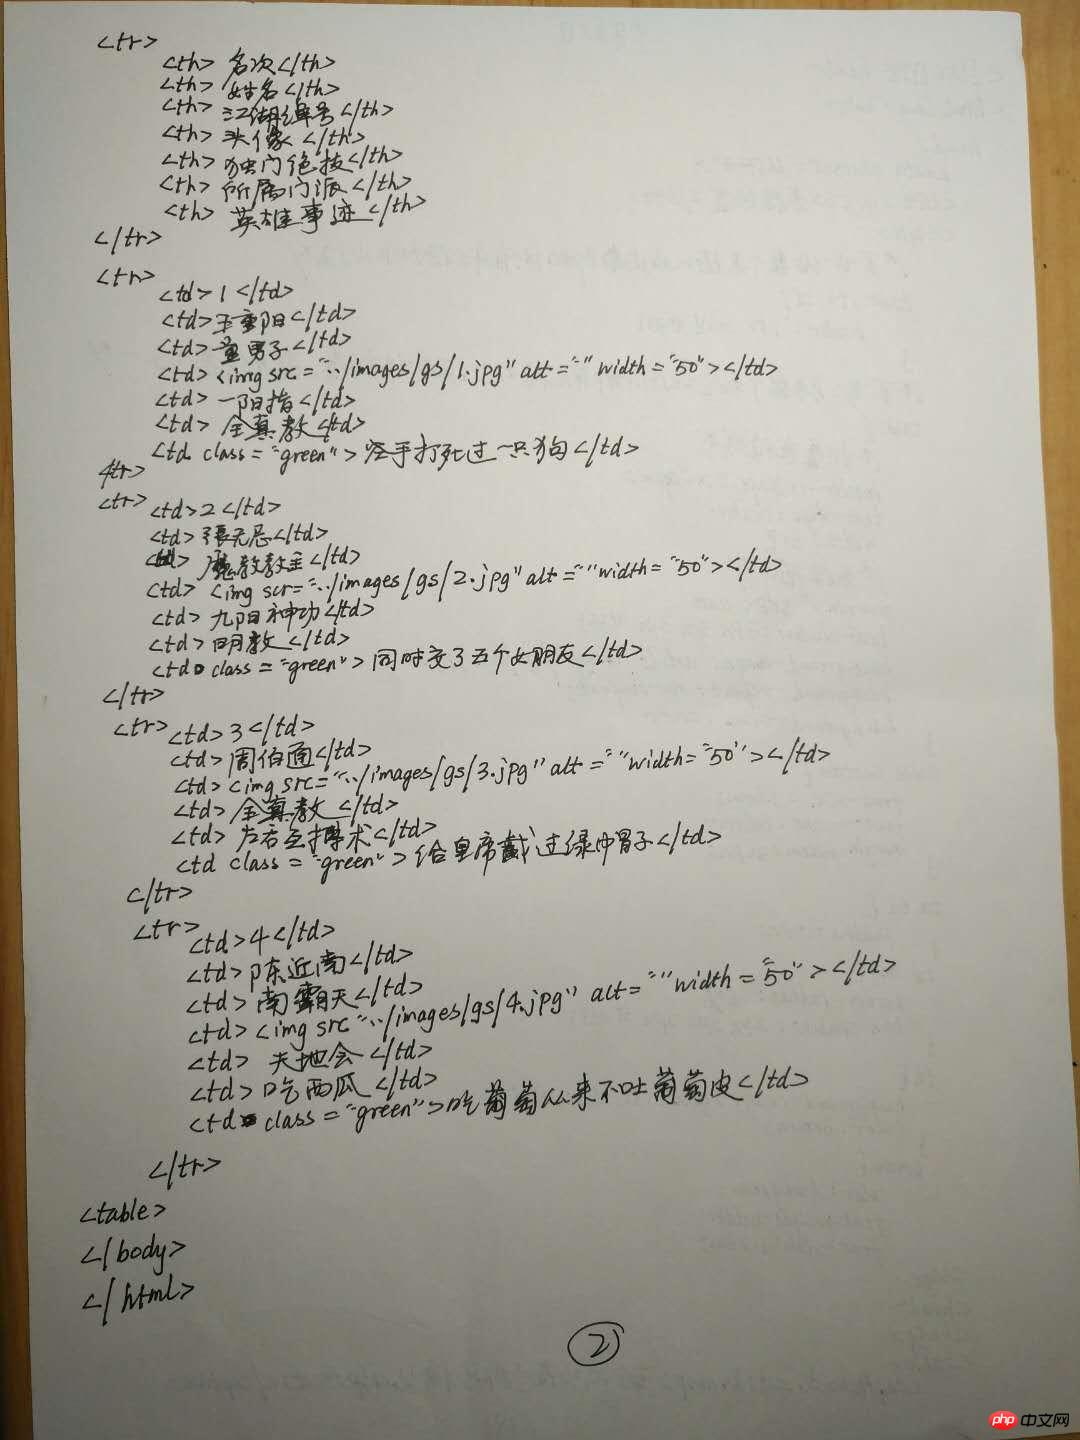 <tr>
<th> 名次</th>
<th> 姓名</th>
<th> 江湖绰号</th>
<th> 头像</th>
<th> 独门绝技</th>
<th> 所属门派</th>
<th> 英雄事迹</th>
</tr>
<tr>
<td>1</td>
<td>王重阳</td>
<td>童男子</td>
<td><img src="../images/gs/1.jpg" alt="" width="50"></td>
<td>一阳指</td>
<td>全真教</td>
<td class="green">怪手打死过一只狗</td>
</tr>
<tr>
<td>2</td>
<td>張无忌</td>
<td>魔教教主</td>
<td><img scr="../images/gs/2.jpg" alt="" width="50"></td>
<td>九阳神功</td>
<td>明教</td>
<td class="green">同时交了五个女朋友</td>
</tr>
<tr>
<td>3</td>
<td>周伯通</td>
<td><img src="../images/gs/3.jpg" alt="" width="50"></td>
<td>全真教</td>
<td>左右互搏术</td>
<td class="green">给皇帝戴过绿帽子</td>
</tr>
<tr>
<td>4</td>
<td>陈近南</td>
<td>南霸天</td>
<td><img src"../images/gs/4.jpg" alt="" width="50"></td>
<td>天地会</td>
<td>吃西瓜</td>
<td class="green">吃葡萄从来不吐葡萄皮</td>
</tr>
<table>
</body>
</html>
2
php 中文网